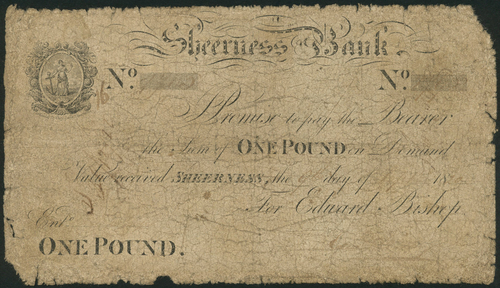 Sheerness Bank.
No. No.
I Promise to pay the Bearer
the Sum of ONE POUND on Demand
Value received SHEERNESS, the day of 18
For Edward Bishop
Entd.
ONE POUND.